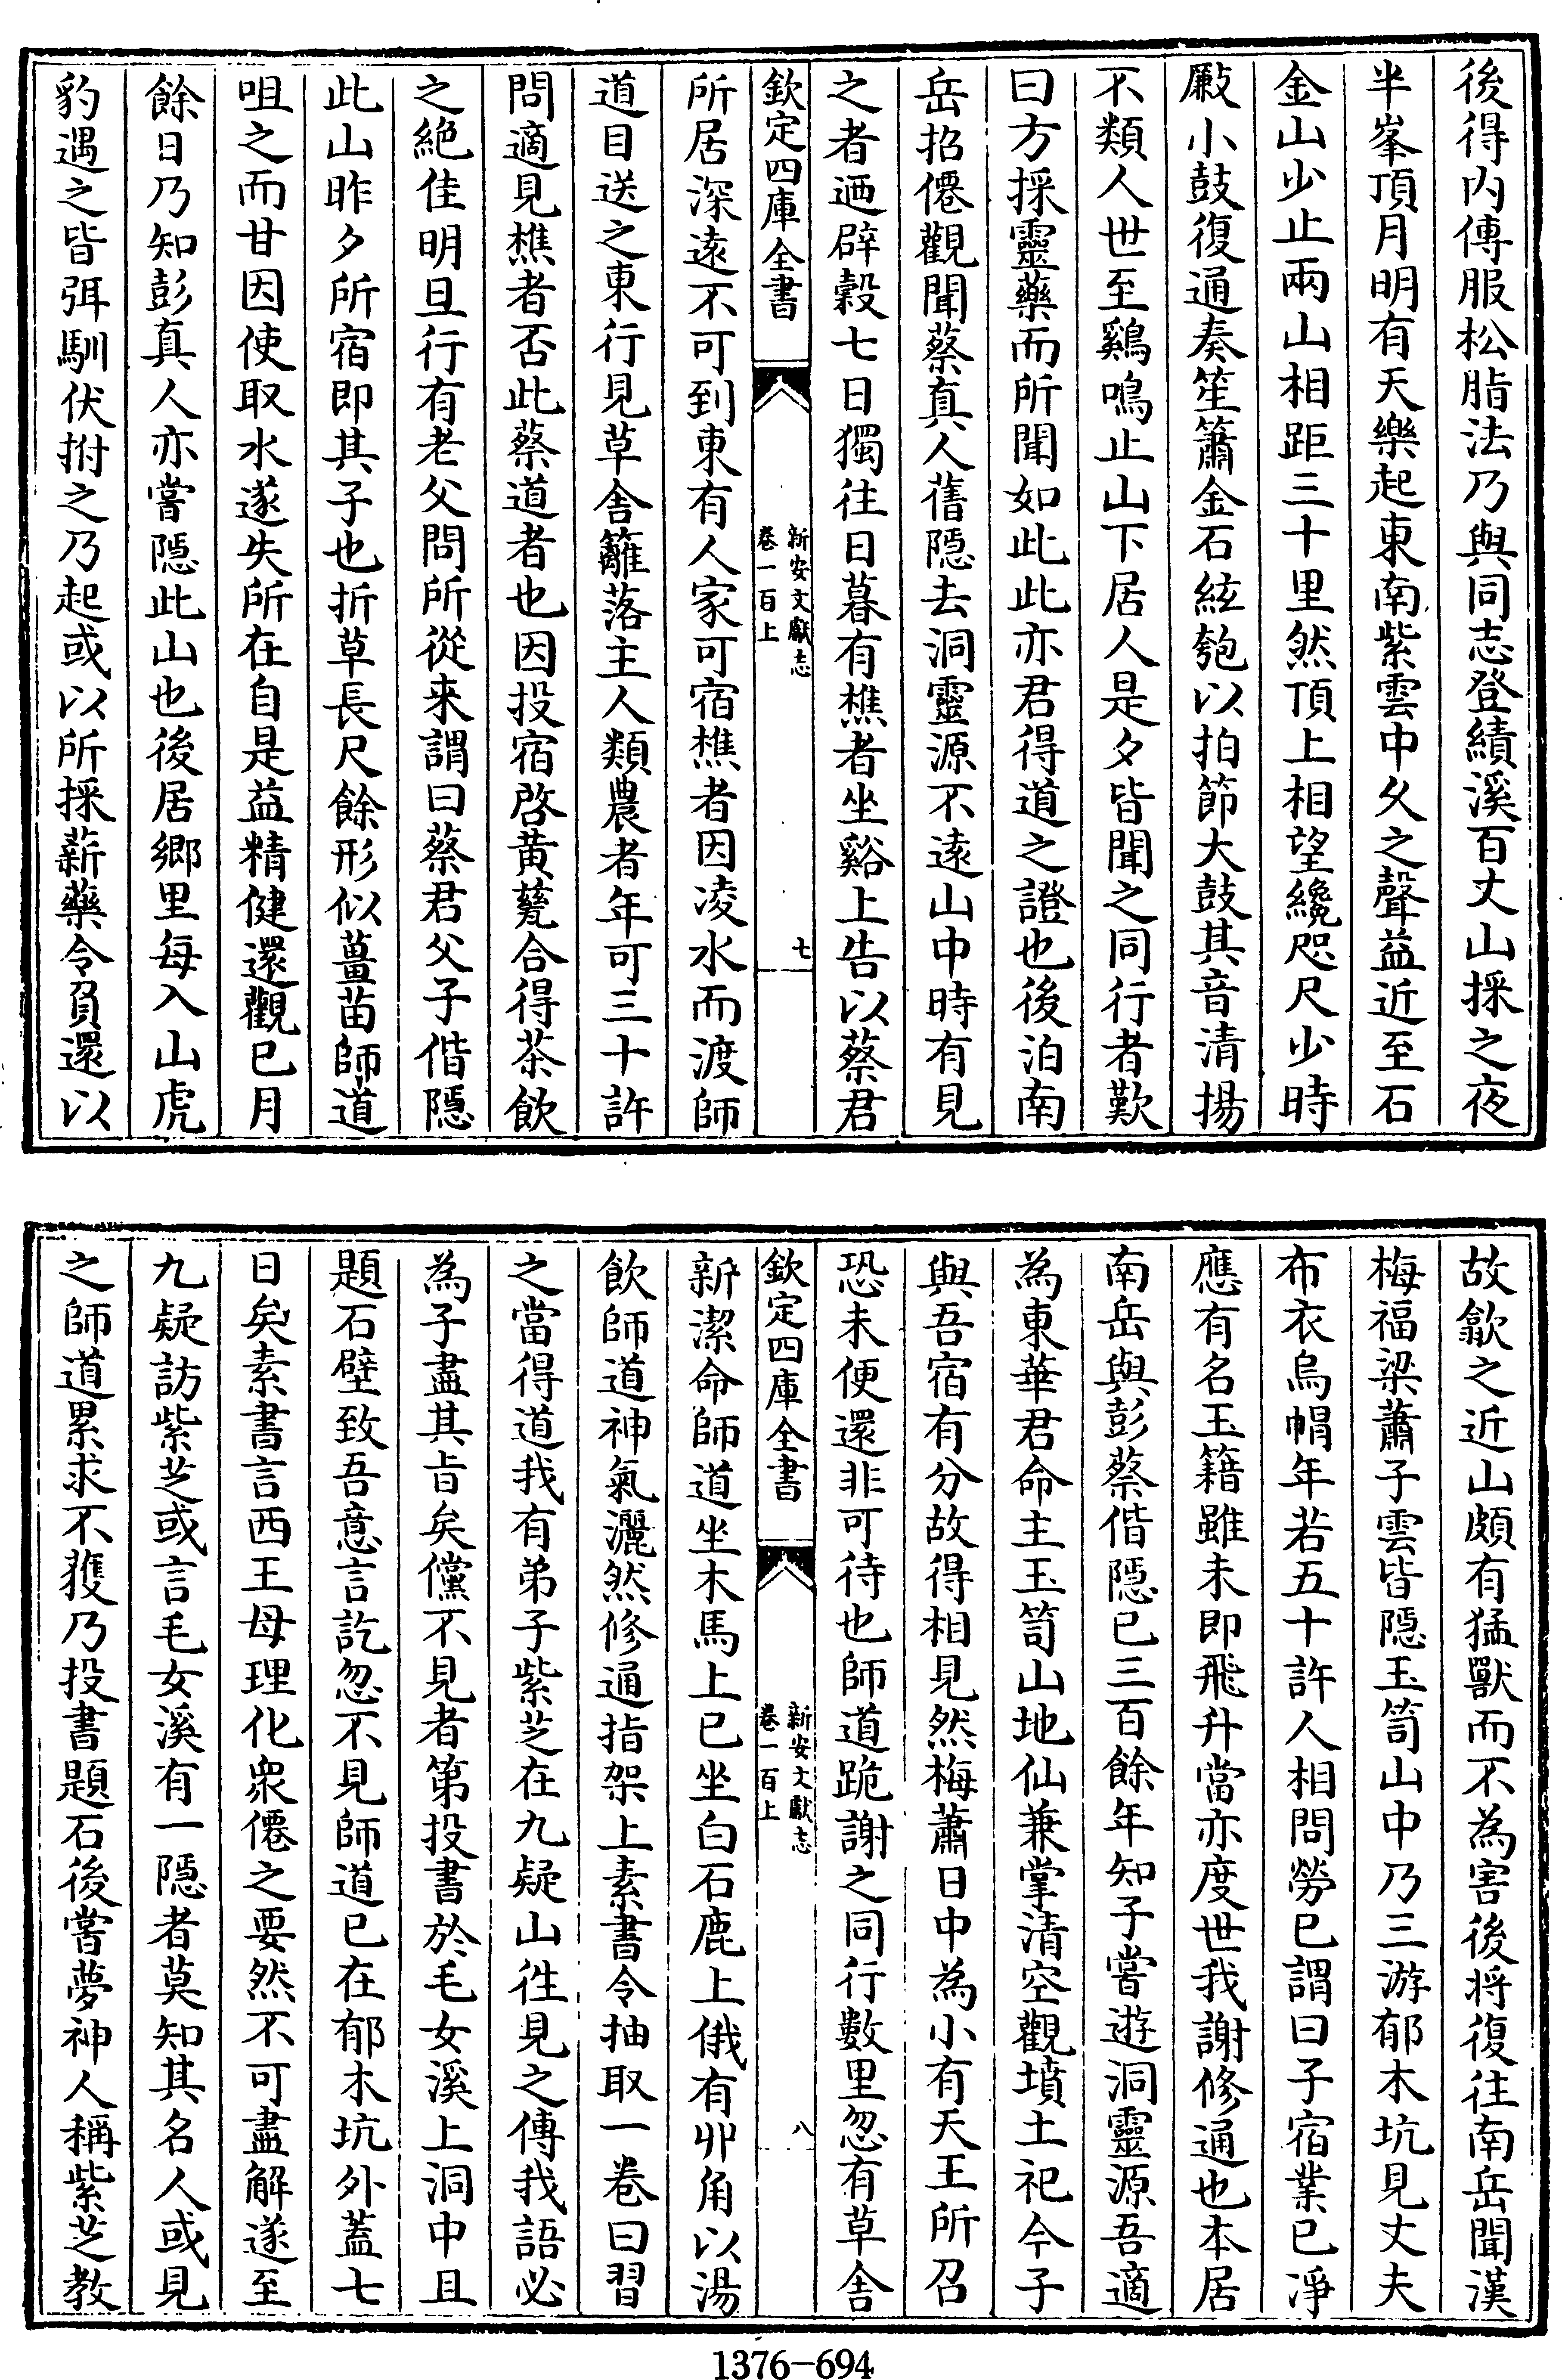 後得内傳服松脂法乃與同志登績溪百丈山採之夜
半峯頂月明有天樂起東南紫雲中乆之聲益近至石
金山少止兩山相距三十里然頂上相望纔咫尺少時
厰小鼓復通奏笙簫金石絃匏以拍節大鼓其音清揚
不類人世至鷄鳴止山下居人是夕皆聞之同行者歎
曰方採靈藥而所聞如此此亦君得道之證也後泊南
岳招僊觀聞蔡真人舊隱去洞靈源不逺山中時有見
之者迺辟穀七日獨往日暮有樵者坐谿上告以蔡君
欽定四庫全書
新安文獻志
卷一百上
七
所居深逺不可到東有人家可宿樵者因凌水而渡師
道目送之東行見草舍籬落主人類農者年可三十許
問適見樵者否此蔡道者也因投宿啓黄甆合得茶飲
之絶佳明旦行有老父問所從來謂曰蔡君父子偕隱
此山昨夕所宿即其子也折草長尺餘形似薑苗師道
咀之而甘因使取水遂失所在自是益精健還觀已月
餘日乃知彭真人亦嘗隱此山也後居鄉里每入山虎
豹遇之皆弭馴伏拊之乃起或以所採薪藥令負還以
故歙之近山頗有猛獸而不為害後将復往南岳聞漢
梅福梁蕭子雲皆隱玉笥山中乃三游郁木坑見丈夫
布衣烏帽年若五十許人相問勞已謂曰子宿業已凈
應有名玉籍雖未即飛升當亦度世我謝修通也本居
南岳與彭蔡偕隱已三百餘年知子嘗遊洞靈源吾適
為東華君命主玉笥山地仙兼掌清空觀墳土祀今子
與吾宿有分故得相見然梅蕭日中為小有天王所召
恐未便還非可待也師道跪謝之同行數里忽有草舍
欽定四庫全書
新安文獻志
卷一百上
八
新潔命師道坐木馬上已坐白石鹿上俄有丱角以湯
飲師道神氣灑然修通指架上素書令抽取一卷曰習
之當得道我有弟子紫芝在九疑山徃見之傳我語必
為子盡其㫖矣儻不見者第投書於毛女溪上洞中且
題石壁致吾意言訖忽不見師道已在郁木坑外蓋七
日矣素書言西王母理化衆僊之要然不可盡解遂至
九疑訪紫芝或言毛女溪有一隱者莫知其名人或見
之師道累求不獲乃投書題石後嘗夢神人稱紫芝教
1376-694